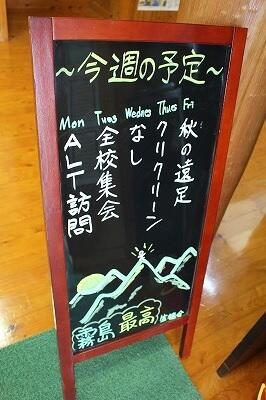 ～今週の予定～
Mon Tues Wednes Thurs Fri
ALT訪問
全校集会
なし
クリクリーン
秋の遠足
霧島最高